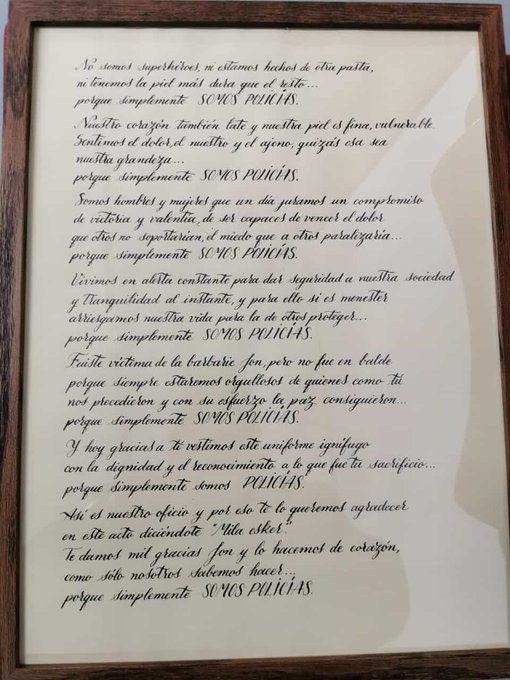 No somos superhéroes, ni estamos hechos de otra pasta,
ni tenemos la piel más dura que el resto...
porque simplemente SOMOS POLICÍAS.
Nuestro corazón también late y nuestra piel es fina, vulnerable.
Sentimos el dolor, el nuestro y el ajeno, quizás esa sea
nuestra grandeza...
porque simplemente SOMOS POLICÍAS.
Somos hombres y mujeres que un día juramos un compromiso
de victoria y valentía, de ser capaces de vencer el dolor
que otros no soportarían, el miedo que a otros paralizaría...
porque simplemente SOMOS POLICÍAS.
Vivimos en alerta constante para dar seguridad a nuestra sociedad
y tranquilidad al instante, y para ello si es menester
arriesgamos nuestra vida para la de otros proteger...
porque simplemente SOMOS POLICÍAS.
Fuiste víctima de la barbarie Jon, pero no fue en balde
porque siempre estaremos orgullosos de quienes como tú
nos precedieron y con su esfuerzo la paz consiguieron...
porque simplemente SOMOS POLICÍAS.
Y hoy gracias a tí vestimos este uniforme ignífugo
con la dignidad y el reconocimiento a lo que fue tu sacrificio...
porque simplemente somos POLICÍAS.
Así es nuestro oficio y por eso te lo queremos agradecer
en este acto diciéndote "Mila esker".
Te damos mil gracias Jon y lo hacemos de corazón,
como sólo nosotros sabemos hacer...
porque simplemente SOMOS POLICÍAS.